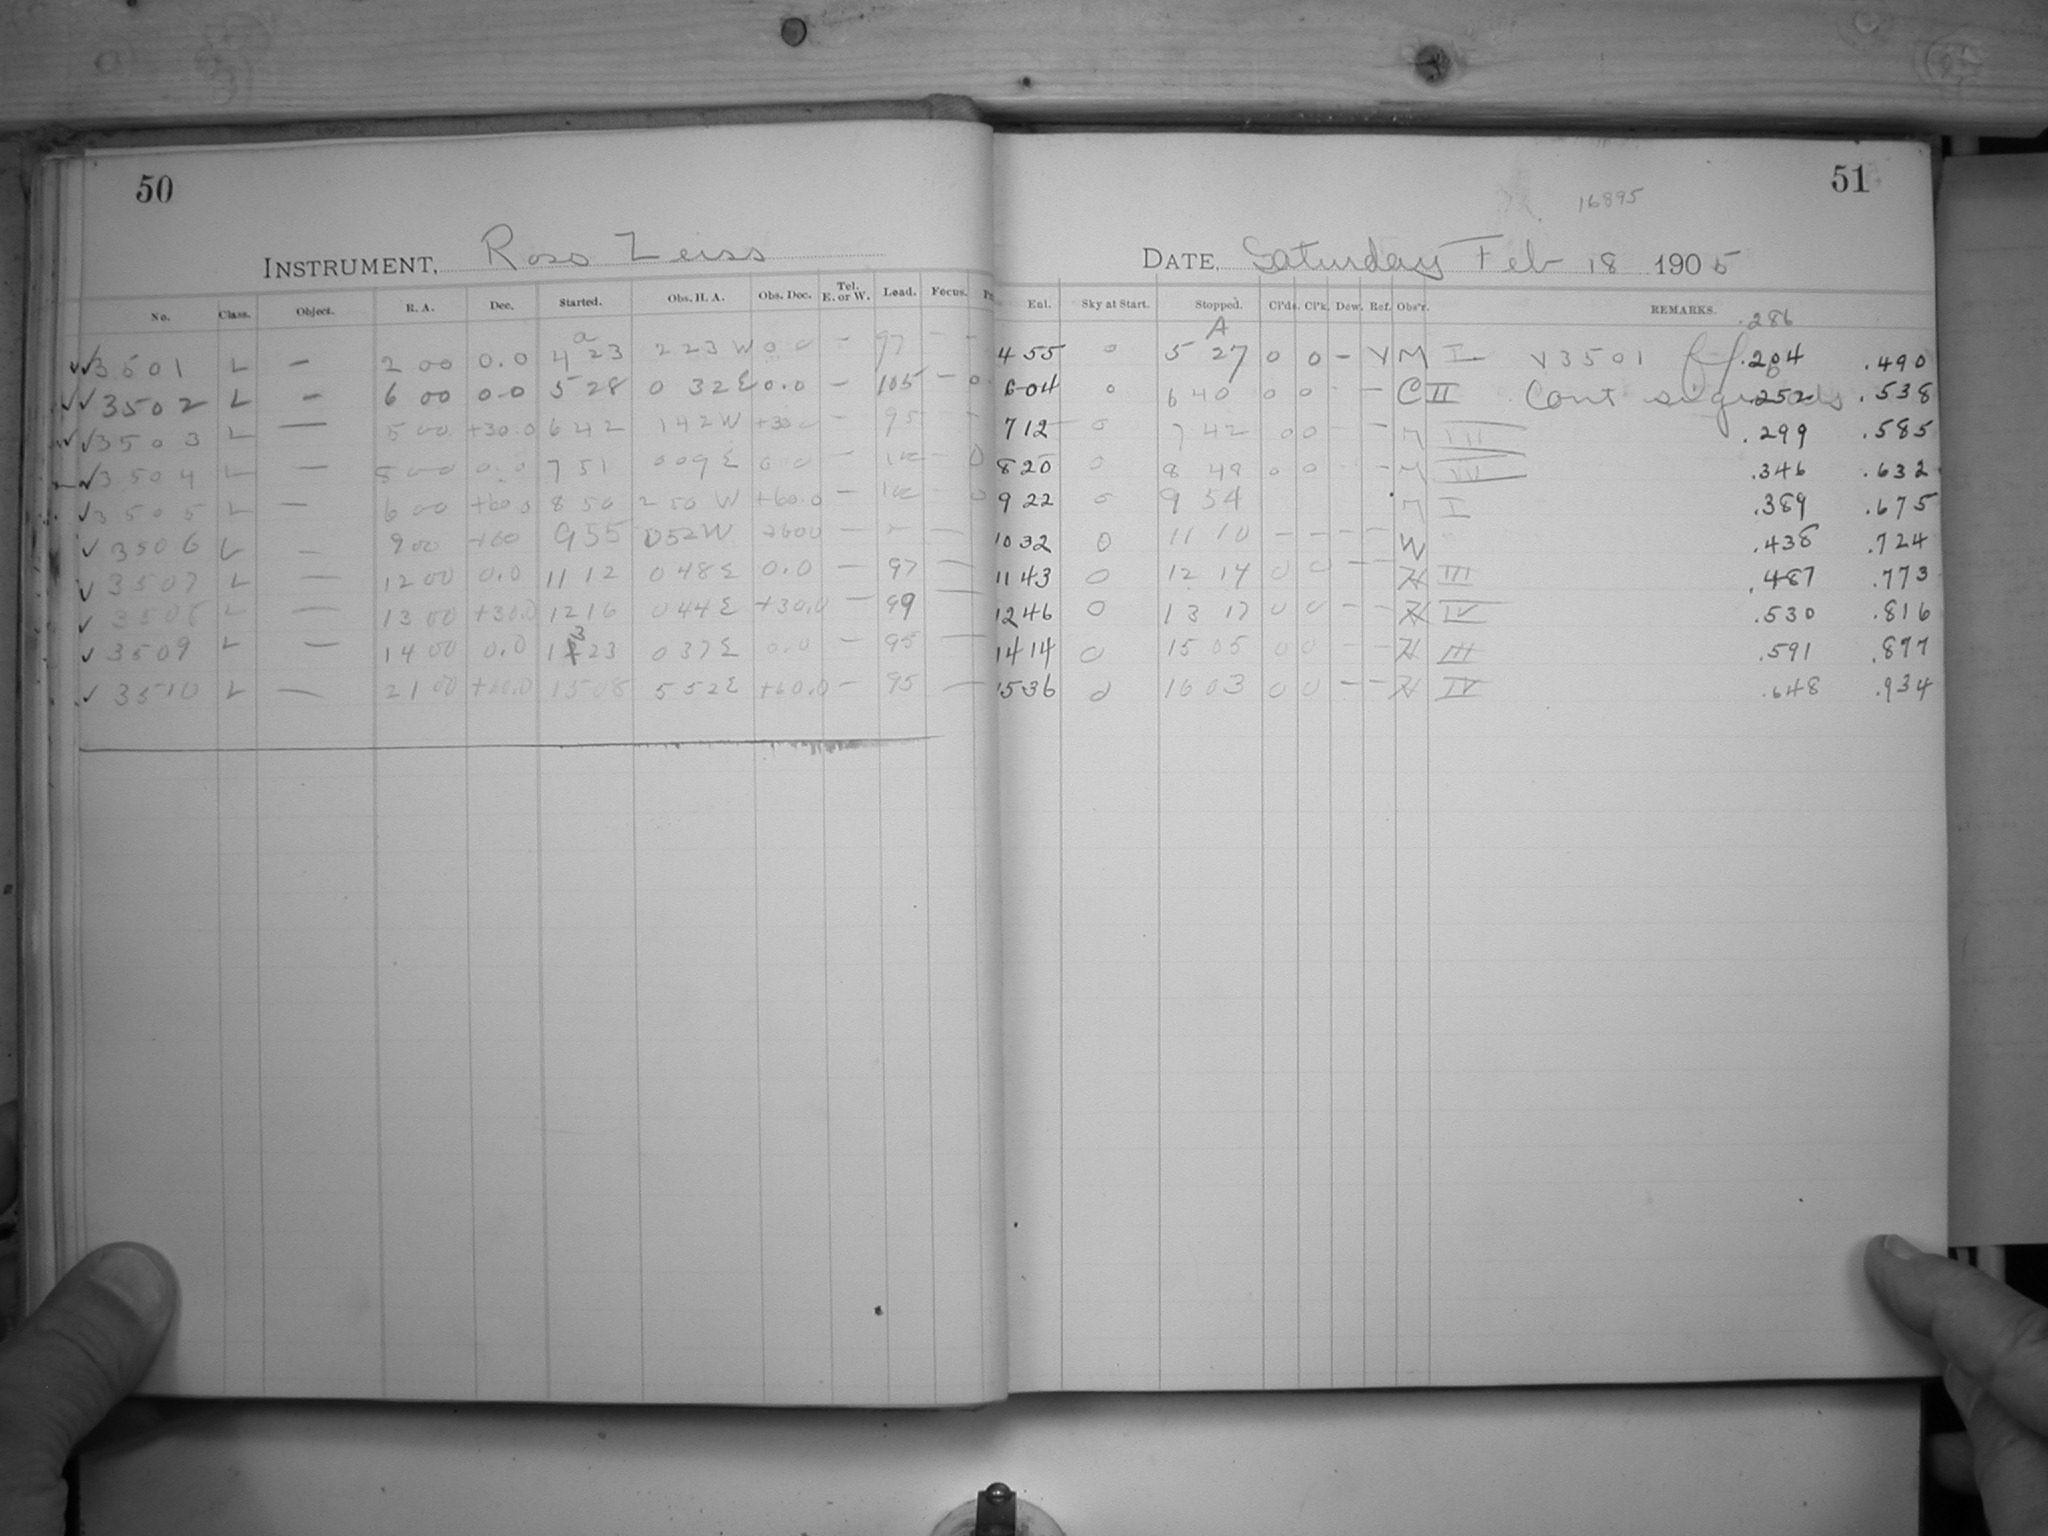 50
INSTRUMENT, Ross Zeiss
No. Class. Object. R. A. Dec. Started. Obs. H. A. Obs. Dec. Tel. E. or W. Lead. Focus.
3501 L — 2 00 0.0 4 23 2 23 W 0 0 — 97 — —
3502 L — 6 00 0.0 5 28 0 32 E 0.0 — 105 — 0
3503 L — 5 00 +30.0 6 42 1 42 W +30 0 — 95 — —
3504 L — 8 00 0.0 7 51 0 09 E 0.0 — — 0
3505 L — 6 00 +60.0 8 50 2 50 W +60.0 — — 0
3506 L — 9 00 +60 9 55 0 52 W +600 — — —
3507 L — 12 00 0.0 11 12 0 48 E 0.0 — 97 —
3508 L — 13 00 +30.0 12 16 0 44 E +30.0 — 99 —
3509 L — 14 00 0.0 13 23 0 37 E 0.0 — 95 —
3510 L — 21 00 +60.0 15 08 5 52 E +60.0 — 95 —
51
16895
DATE, Saturday Feb 18 1905
Eul. Sky at Start. Stopped. Cl'ds. Cl'k. Dew. Ref. Obs'r. REMARKS.
.286
4 55 0 A 5 27 0 0 — V M I V 3501 .204 .490
6 04 0 6 40 0 0 — — C II Cont signals .252 .538
7 12 0 7 42 0 0 — — M III .299 .585
8 20 0 8 48 0 0 — M IV .346 .632
9 22 0 9 54 M I .389 .675
10 32 0 11 10 — — — — W .438 .724
11 43 0 12 14 0 0 — — H III .487 .773
12 46 0 13 17 0 0 — — H IV .530 .816
14 14 0 15 05 0 0 — — H III .591 .877
15 36 0 16 03 0 0 — — H IV .648 .934